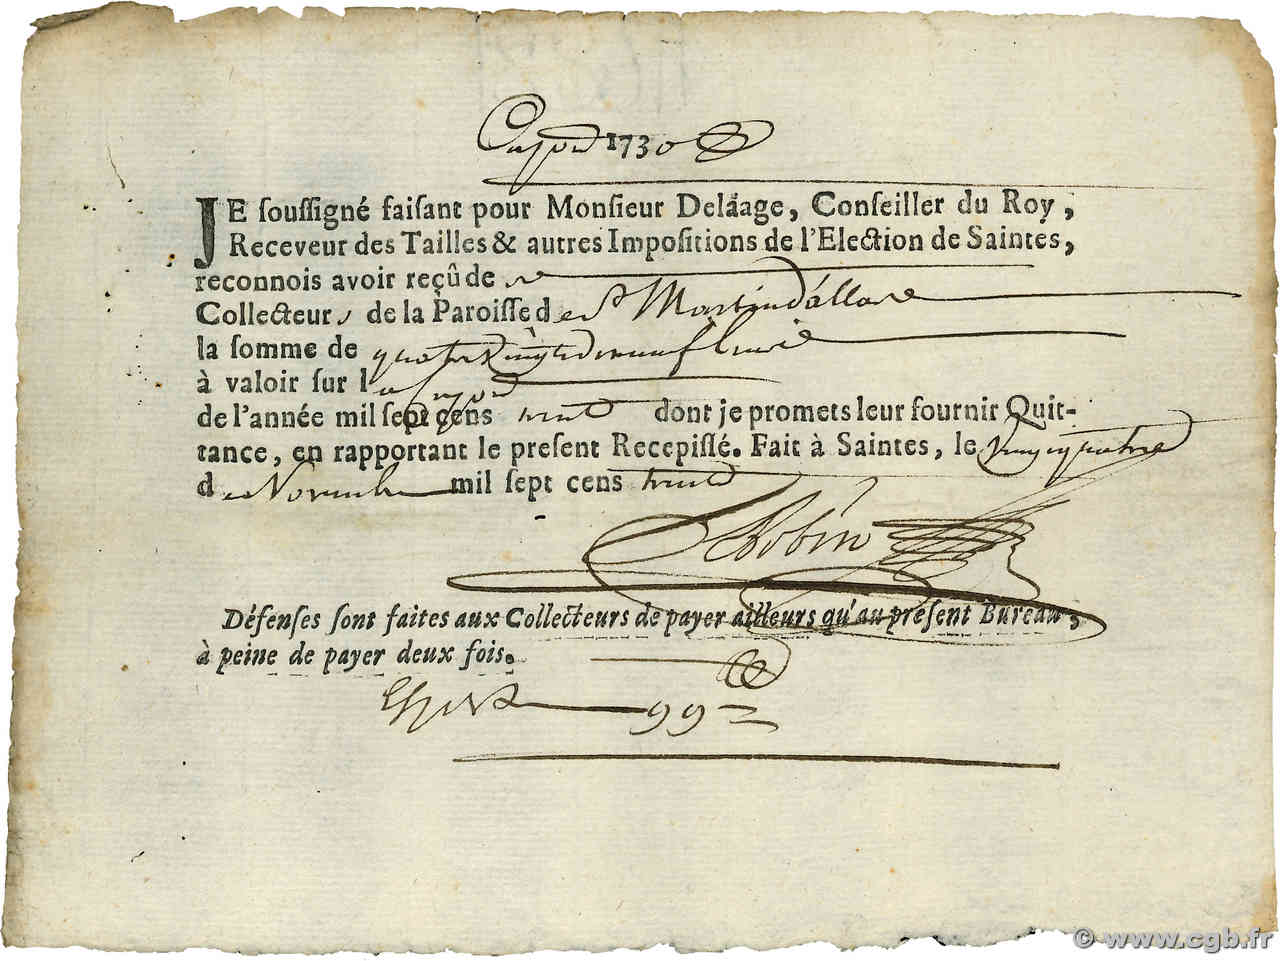 1730
JE soussigné faisant pour Monsieur Delaage, Conseiller du Roy,
Receveur des Tailles & autres Impositions de l'Election de Saintes,
reconnois avoir reçû de
Collecteurs de la Paroisse de St Martin d'allare
la somme de quatre vingt dix neuf livres
à valoir sur l
de l'année mil sept cens trente dont je promets leur fournir Quit-
tance, en rapportant le present Recepissé. Fait à Saintes, le vingt quatre
de Novembre mil sept cens trente
Robin
Défenses sont faites aux Collecteurs de payer ailleurs qu'au présent Bureau,
à peine de payer deux fois.
99
© www.cgb.fr